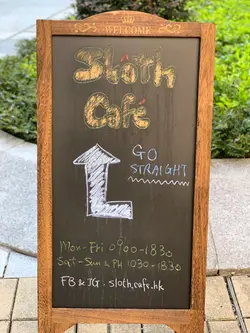 WELCOME
Sloth
Café
GO
STRAIGHT
Mon-Fri 0900-1830
Sat-Sun & PH 1030-1830
FB & IG : sloth.cafe.hk